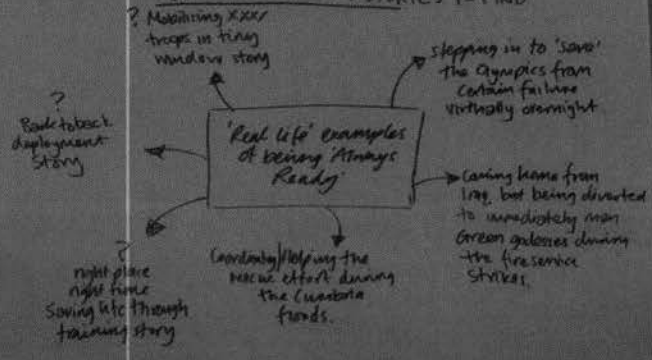 STORIES TO FIND
? Mobilising XXX/
troops in tiny
window story
stepping in to 'save'
the Olympics from
certain failure
virtually overnight.
?
Back to back
deployment
story
'Real life' examples
of being 'Always
Ready'
Coming home from
Iraq, but being diverted
to immediately man
Green goddesses during
the fire service
strikes.
?
right place
right time
Saving life through
training story
Coordinating/Helping the
rescue effort during
the Cumbria
floods.